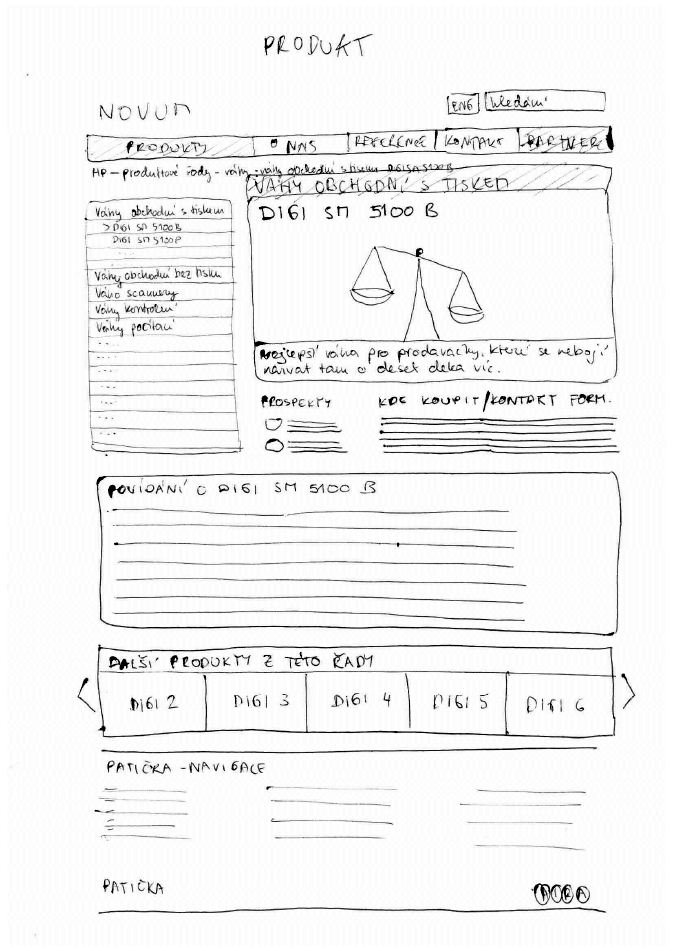 PRODUKT
NOVUM
ENG hledání
PRODUKTY O NÁS REFERENCE KONTAKT PARTNER
HP - produktové řady - váhy - váhy obchodní s tiskem DIGI SM 5100 B
VÁHY OBCHODNÍ S TISKEM
DIGI SM 5100 B
Váhy obchodní s tiskem
> DIGI SM 5100B
DIGI SM 5100P
Váhy obchodní bez tisku
Váho scannery
Váhy kontrolní
Váhy počítací
Nejlepší váha pro prodavačky, které se nebojí
narvat tam o deset deka víc.
PROSPEKTY
KDE KOUPIT/KONTAKT FORM.
POVÍDÁNÍ O DIGI SM 5100 B
DALŠÍ PRODUKTY Z TÉTO ŘADY
< DIGI 2 DIGI 3 DIGI 4 DIGI 5 DIGI 6 >
PATIČKA - NAVIGACE
PATIČKA